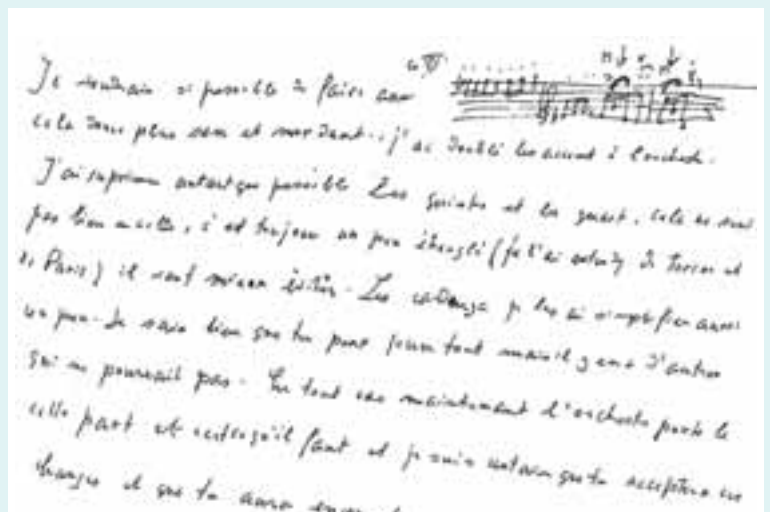 Je voudrais si possible de faire avec
cela sera plus sem et mordant.. j'ai doublé les accent à l'orchestr.
J'ai suprimer autant que possible Les quinte et les quart, cela ne sone
pas bien au cello, c'est toujour un peu étranglé (je l'ai entendu de Turin et
de Paris) il vaut mieux éviter. Les cadenza je les ai simplifier aussi
un peu. Je sais bien que tu peux jouer tout mais il y en a d'autres
qui ne pourrait pas. En tout cas maintenant l'orchestre porte le
cello part et c'est ce qu'il faut et je suis certain que tu acceptera ces
changes et que tu aura